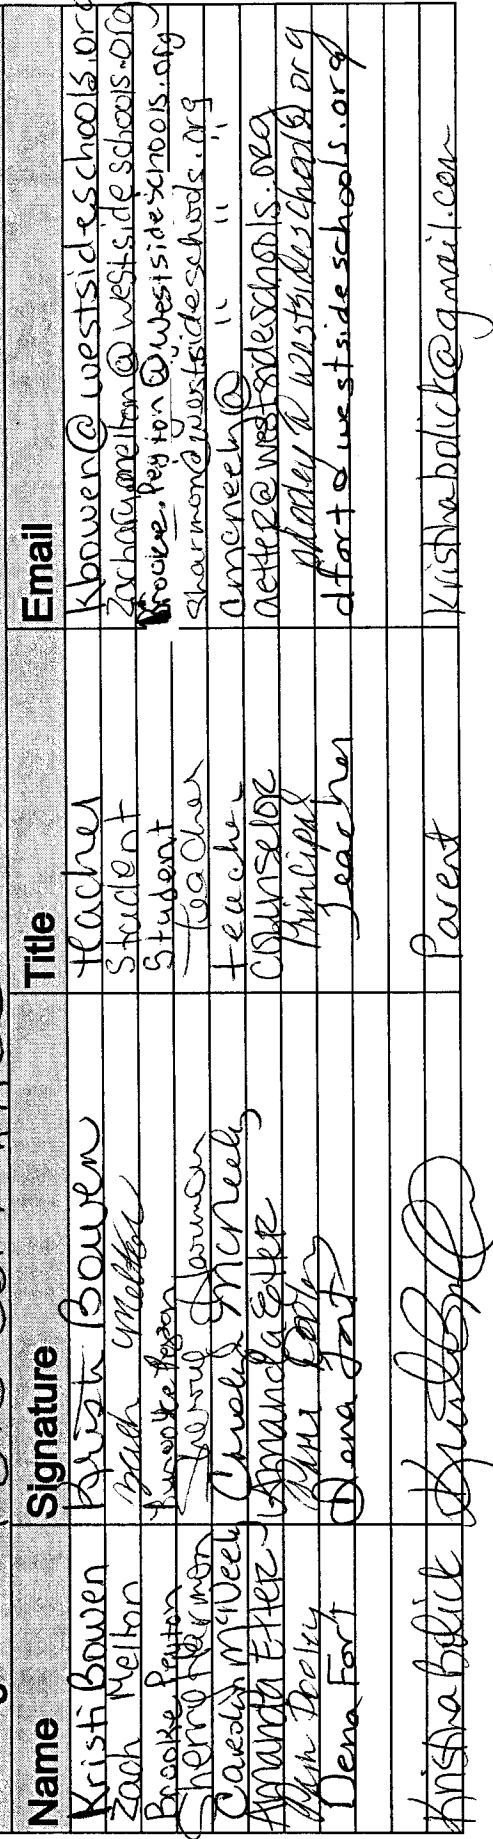 Name Signature Title Email
Kristi Bowen Kristi Bowen teacher kbowen@westsideschools.org
Zach Melton Zach Melton Student zachary.melton@westsideschools.org
Brooke Peyton Brooke Peyton Student brooke.peyton@westsideschools.org
Sherrel Harmon Sherrel Harmon Teacher sharmon@westsideschools.org
Carolyn McNeely Carolyn McNeely teacher cmcneely@ " " "
Amanda Etter Amanda Etter Counselor aetter@westsideschools.org
Dooley Principal pdooley@westsideschools.org
Dena Fort Dena Fort Teacher dfort@westsideschools.org
Kristina Bolick Parent Kristinabolick@gmail.com